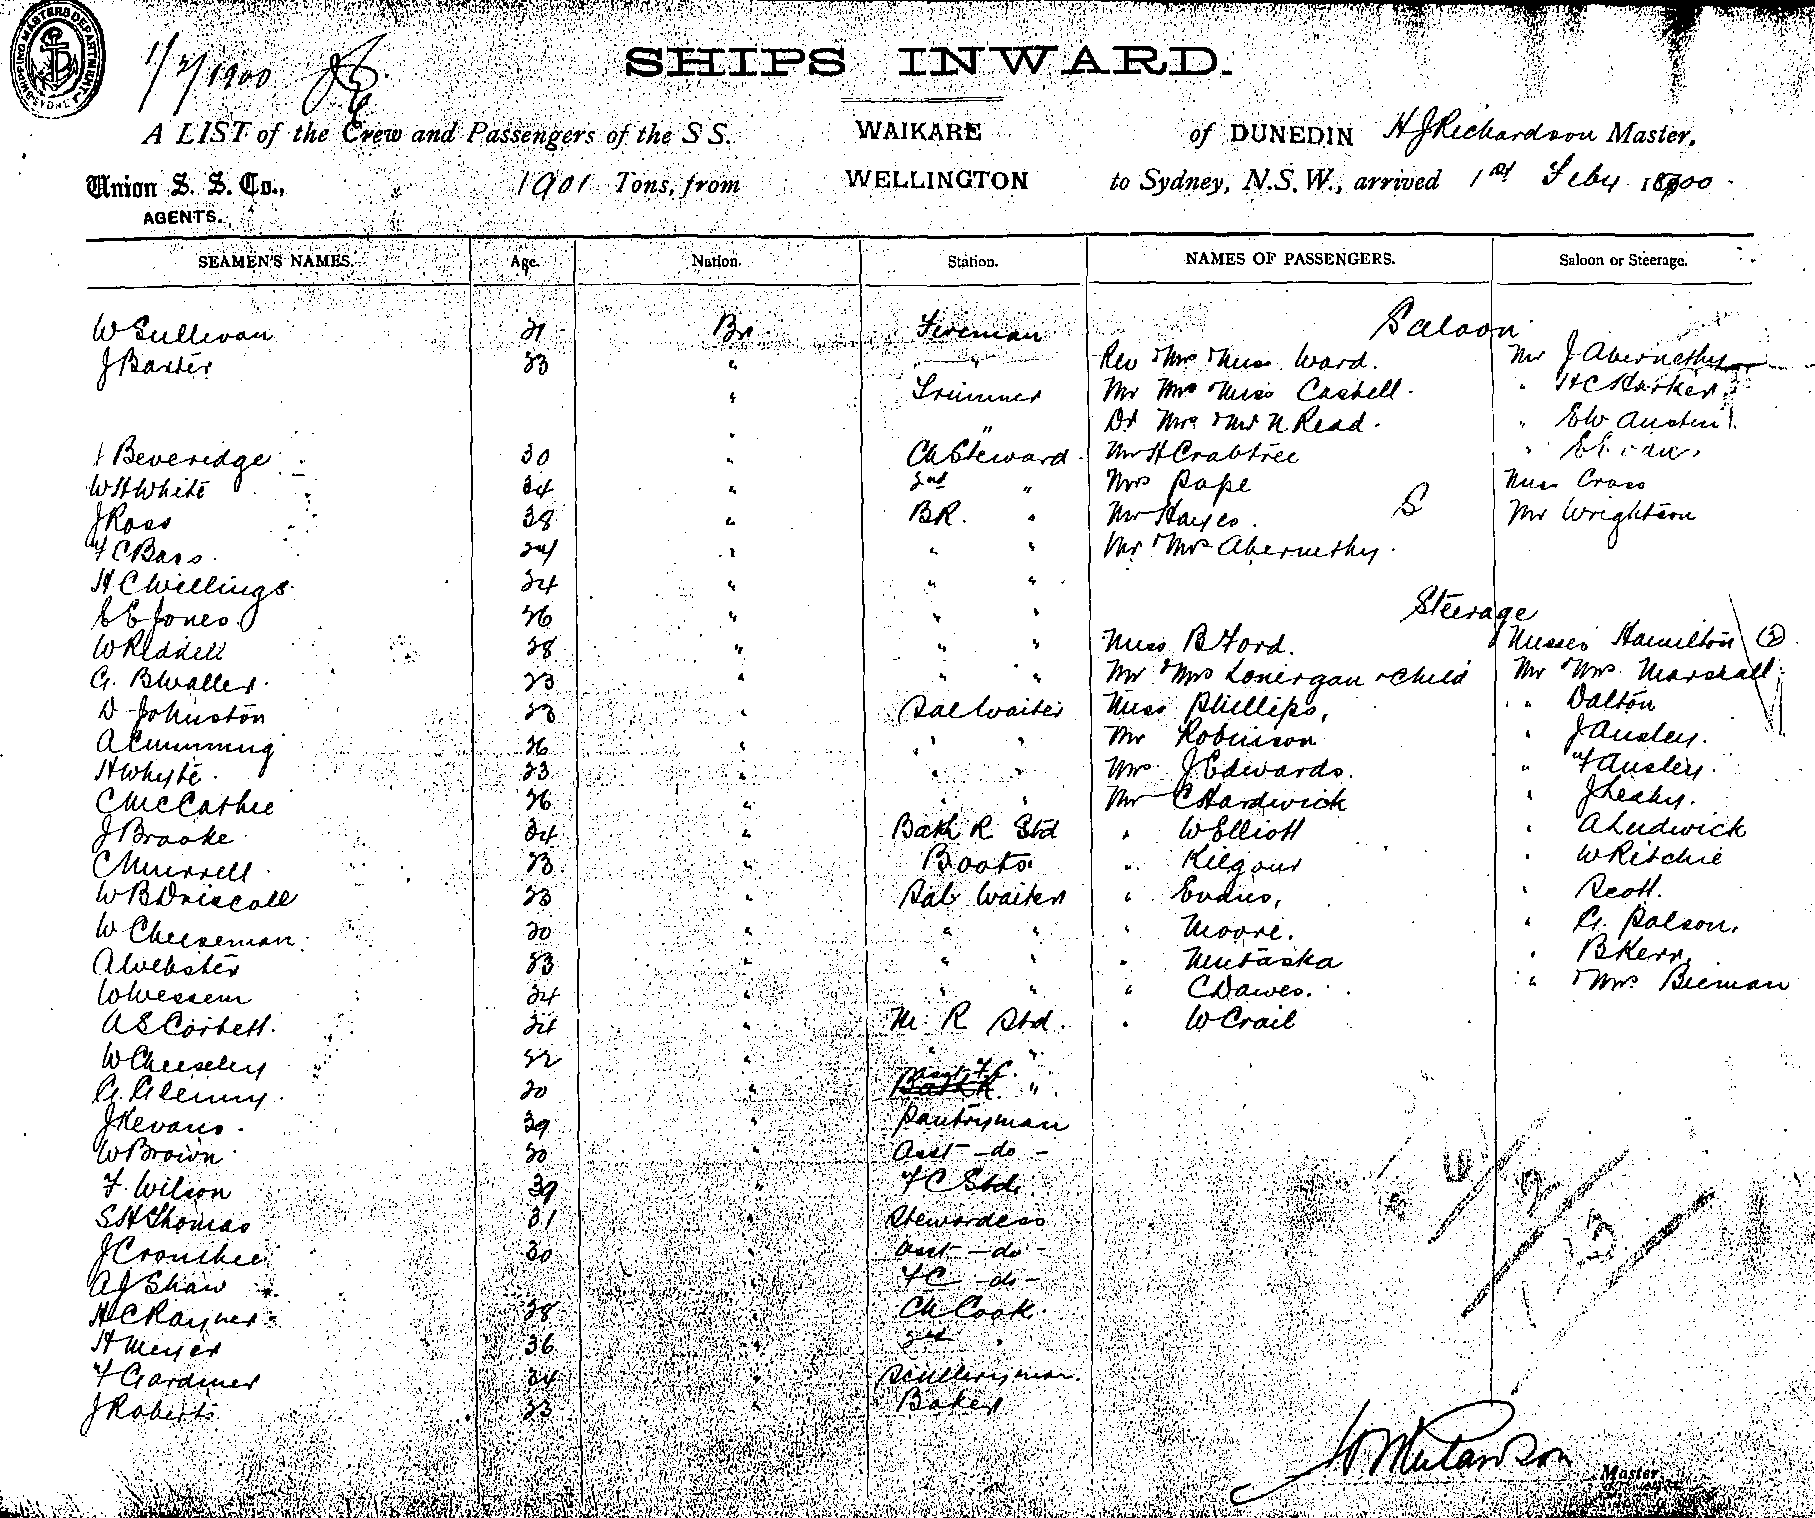 1/2/1900
SHIPS INWARD.
A LIST of the Crew and Passengers of the S S. WAIKARE of DUNEDIN H J Richardson Master,
Union S. S. Co., AGENTS. 1901 Tons, from WELLINGTON to Sydney, N.S.W., arrived 1st Feby 1900
SEAMEN'S NAMES. Age. Nation. Station. NAMES OF PASSENGERS. Saloon or Steerage.
Saloon
W Sullivan 21 Br Fireman
J Baxter 23 " " Rev & Mrs & Miss Ward. Mr J Abernethy
" Trimmer Mr Mrs & Miss Castell. " H C Harker
" " Dr Mrs & Mr N Read. " E W Austin
Beveridge 30 " Ch Steward Mr H Crabtree "
W H White 34 " 2nd " Mrs Pape Miss Cross
J Ross 38 " BR. " Mr Hayes. S Mr Wrightson
F C Bass. 24 " " " Mr & Mrs Abernethy.
H C Willings 24 " " "
Steerage
E E Jones 26 " " "
W Riddell 28 " " " Miss B Ford. Misses Hamilton (2)
G. B Waller. 23 " " " Mr & Mrs Lonergan & Child Mr & Mrs Marshall
D Johnston 23 " Sal Waiter Miss Phillips, " " Dalton
A Cumming 26 " " " Mr Robinson " J Ansley.
H Whyte. 23 " " " Mrs J Edwards. " F Ansley.
C McCathie 26 " " " Mr C Hardwick " J Leahy.
J Brooke 34 " Bath R Std " W Elliott " A Ludwick
C Murrell 23 " Boots " Kilgour " W Ritchie
W B Driscoll 23 " Sal Waiter " Evans, " Scott.
W Cheeseman. 20 " " " " Moore. " G. Palson.
A Webster 23 " " " " " B Kerr,
W Wessem 24 " " " " C Dawes. " & Mrs Bieman
A S Corbett. 24 " M. R Std. " W Crail
W Cheeseley 22 " " "
G. Glenny. 20 " Asst F.C. "
J Kevans. 39 " Pantryman
W Brown 20 " Asst - do -
F. Wilson 39 " F C Std.
S H Thomas 31 " Stewardess
J Crombie 30 " Asst - do -
A J Shaw " F C - do -
H C Rayner 28 " Ch Cook.
H Meyer 36 " 2nd "
F Gardiner 34 " Sculleryman.
J Roberts 23 " Baker
H J Richardson
Master